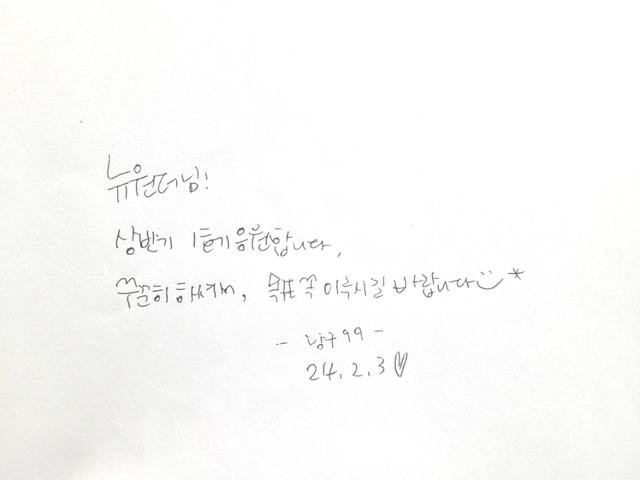 뉴원더님!
상반기 1호기 응원합니다,
꾸준히 해서, 목표 꼭 이루시길 바랍니다 :) *
- 낭구99 -
24. 2. 3 ♡